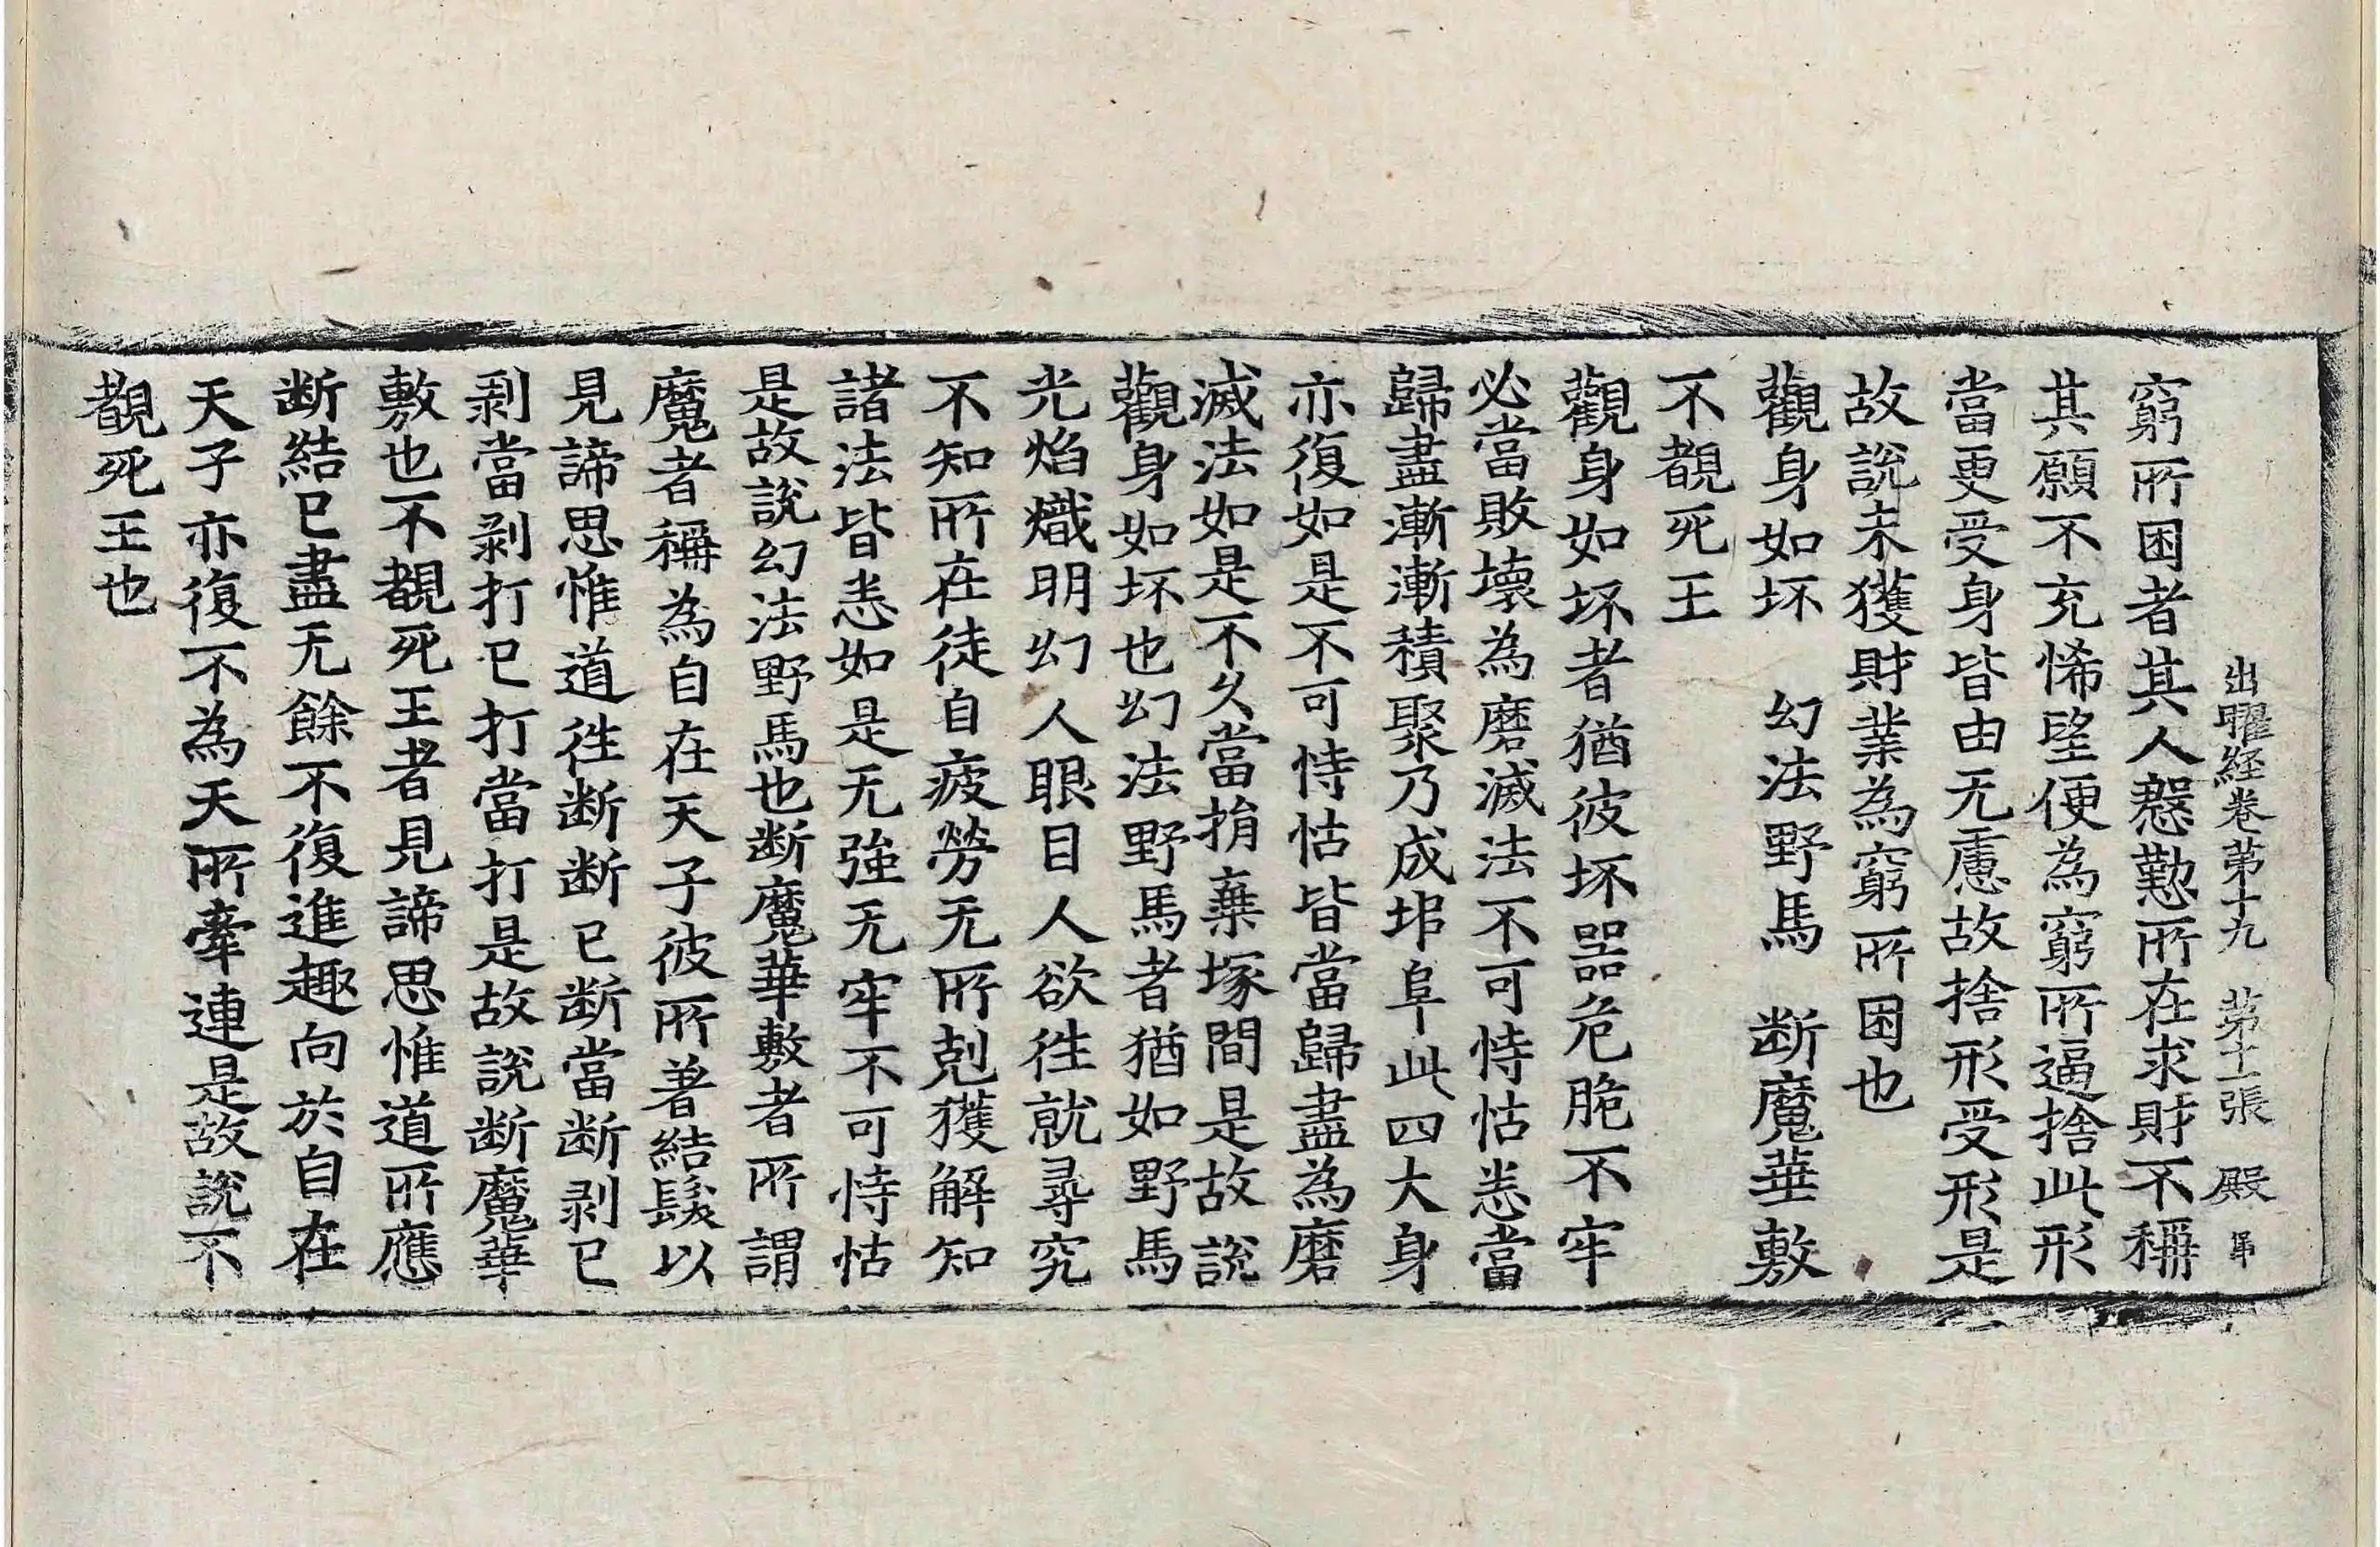 出曜経巻第十九　第十一張　殿
窮所困者其人慇懃所在求財不稱
其願不充悕望便為窮所逼捨此形
當更受身皆由无慮故捨形受形是
故說未獲財業為窮所困也
觀身如坏　幻法野馬　断魔華敷
不覩死王
觀身如坏者猶彼坏器危脆不牢
必當敗壞為磨滅法不可恃怙悉當
歸盡漸漸積聚乃成塠阜此四大身
亦復如是不可恃怙皆當歸盡為磨
滅法如是不久當捐棄塚間是故說
觀身如坏也幻法野馬者猶如野馬
光焰熾明幻人眼目人欲徃就尋究
不知所在徒自疲勞无所剋獲解知
諸法皆悉如是无強无牢不可恃怙
是故說幻法野馬也断魔華敷者所謂
魔者稱為自在天子彼所著結髮以
見諦思惟道徃断断已断當断剥已
剥當剥打已打當打是故說断魔華
敷也不覩死王者見諦思惟道所應
断結已盡无餘不復進趣向於自在
天子亦復不為天所牽連是故說不
覩死王也